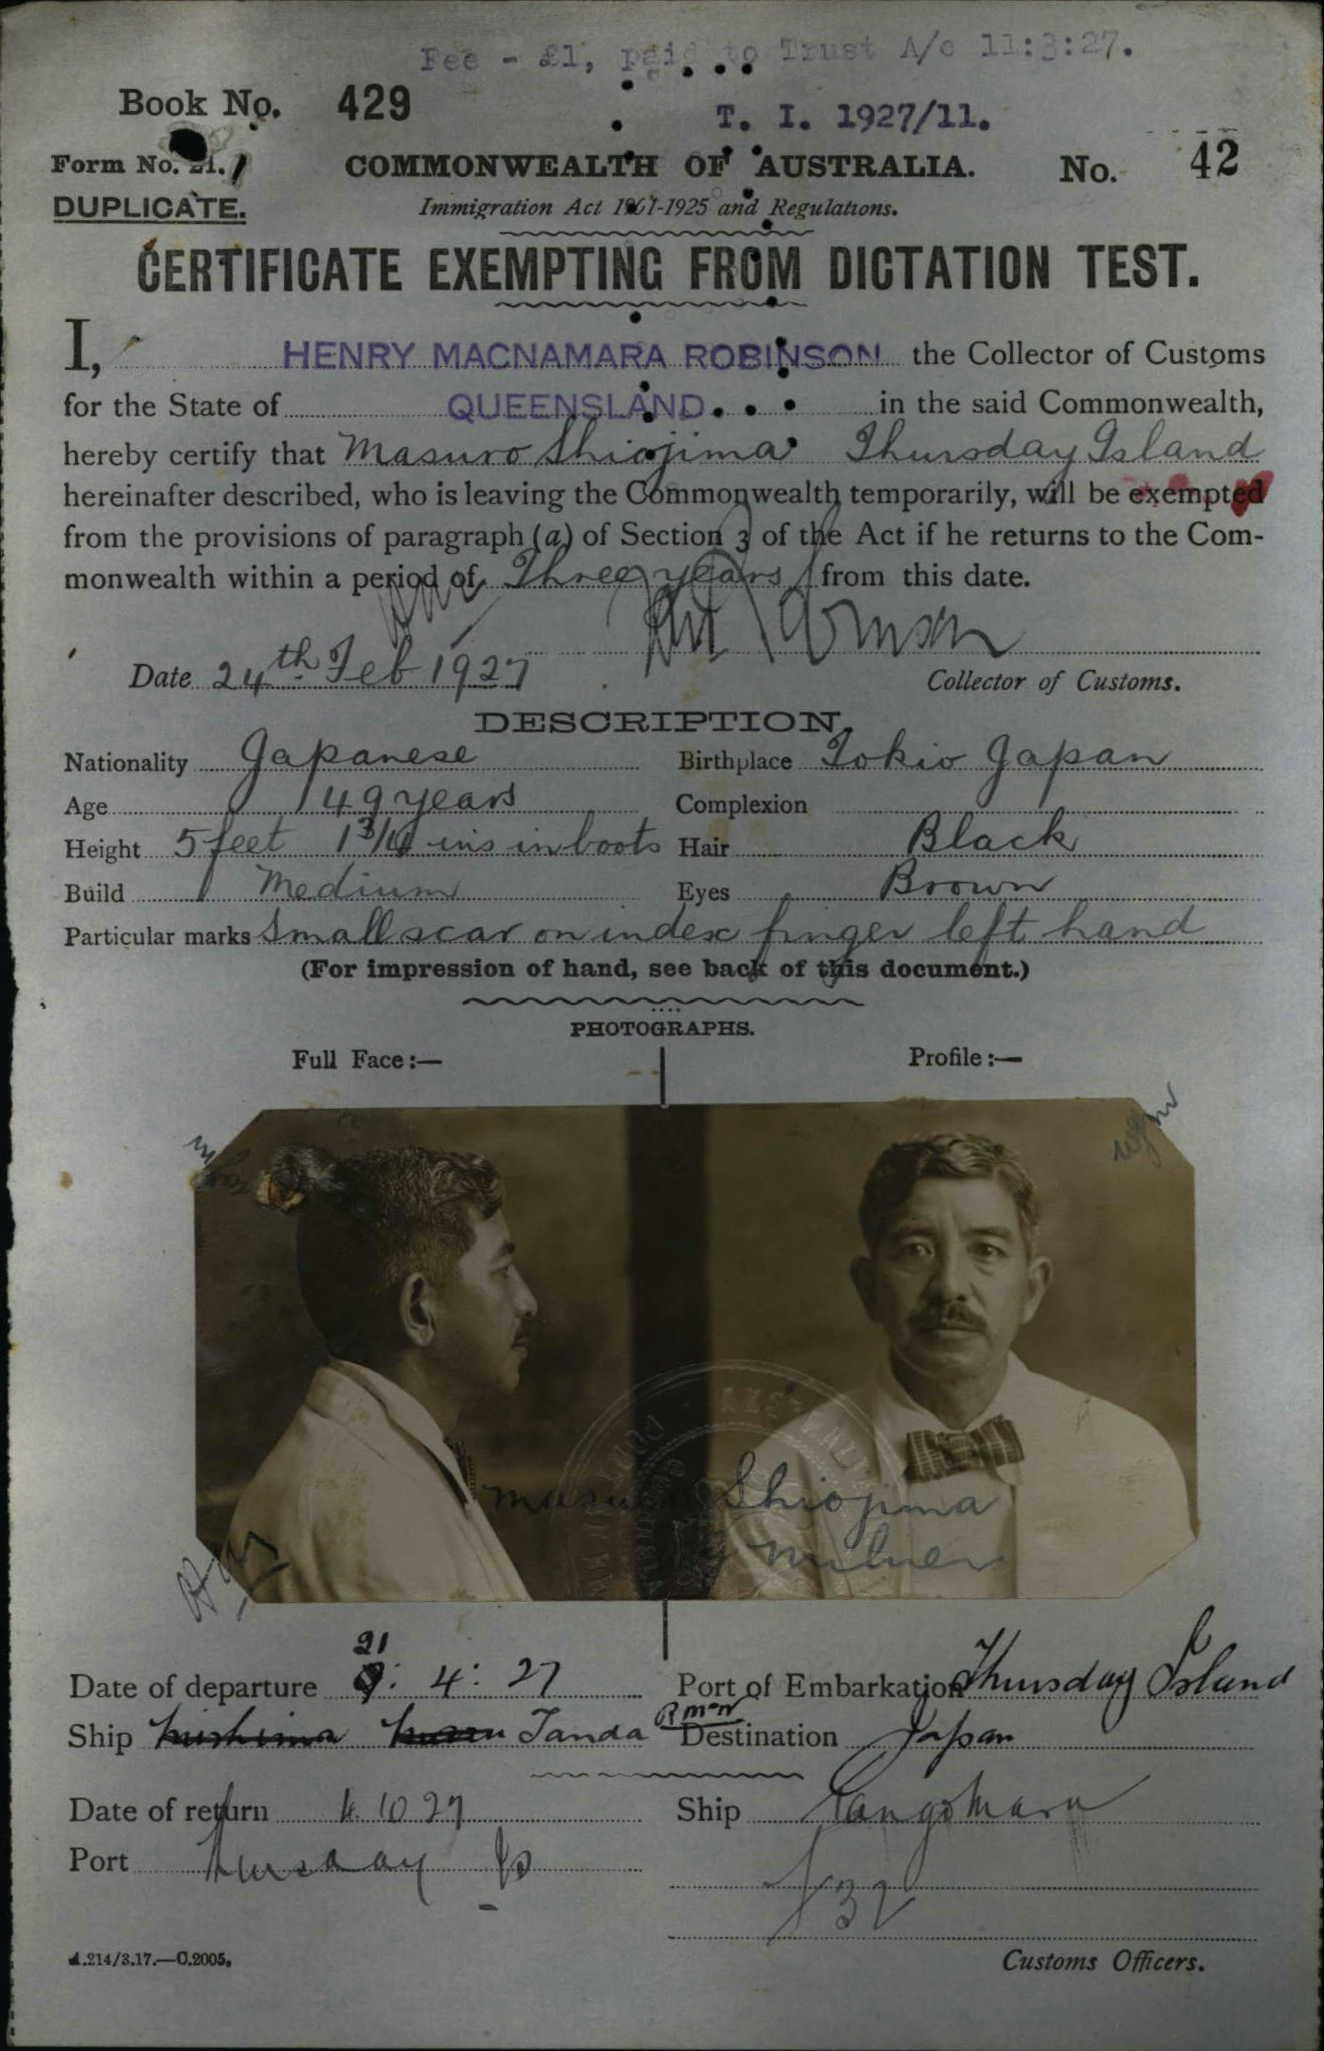 Fee - £1, paid to Trust A/c 11:3:27.
Book No. 429
T. I. 1927/11.
Form No. 21.
COMMONWEALTH OF AUSTRALIA.
No. 42
DUPLICATE.
Immigration Act 1901-1925 and Regulations.
CERTIFICATE EXEMPTING FROM DICTATION TEST.
I, HENRY MACNAMARA ROBINSON the Collector of Customs
for the State of QUEENSLAND in the said Commonwealth,
hereby certify that Masuro Shiojima Thursday Island
hereinafter described, who is leaving the Commonwealth temporarily, will be exempted
from the provisions of paragraph (a) of Section 3 of the Act if he returns to the Com-
monwealth within a period of Three years from this date.
Date 24th Feb 1927
Collector of Customs.
DESCRIPTION.
Nationality Japanese Birthplace Tokio Japan
Age 49 years Complexion
Height 5 feet 1 3/4 ins in boots Hair Black
Build Medium Eyes Brown
Particular marks Small scar on index finger left hand
(For impression of hand, see back of this document.)
PHOTOGRAPHS.
Full Face:— Profile:—
Masuro Shiojima
Milner
Date of departure 21: 4: 27 Port of Embarkation Thursday Island
Ship Mishima Maru Tanda Destination Japan
Date of return 4. 10 27 Ship Tango Maru
Port Thursday Is
A.214/3.17.—C.2005.
Customs Officers.